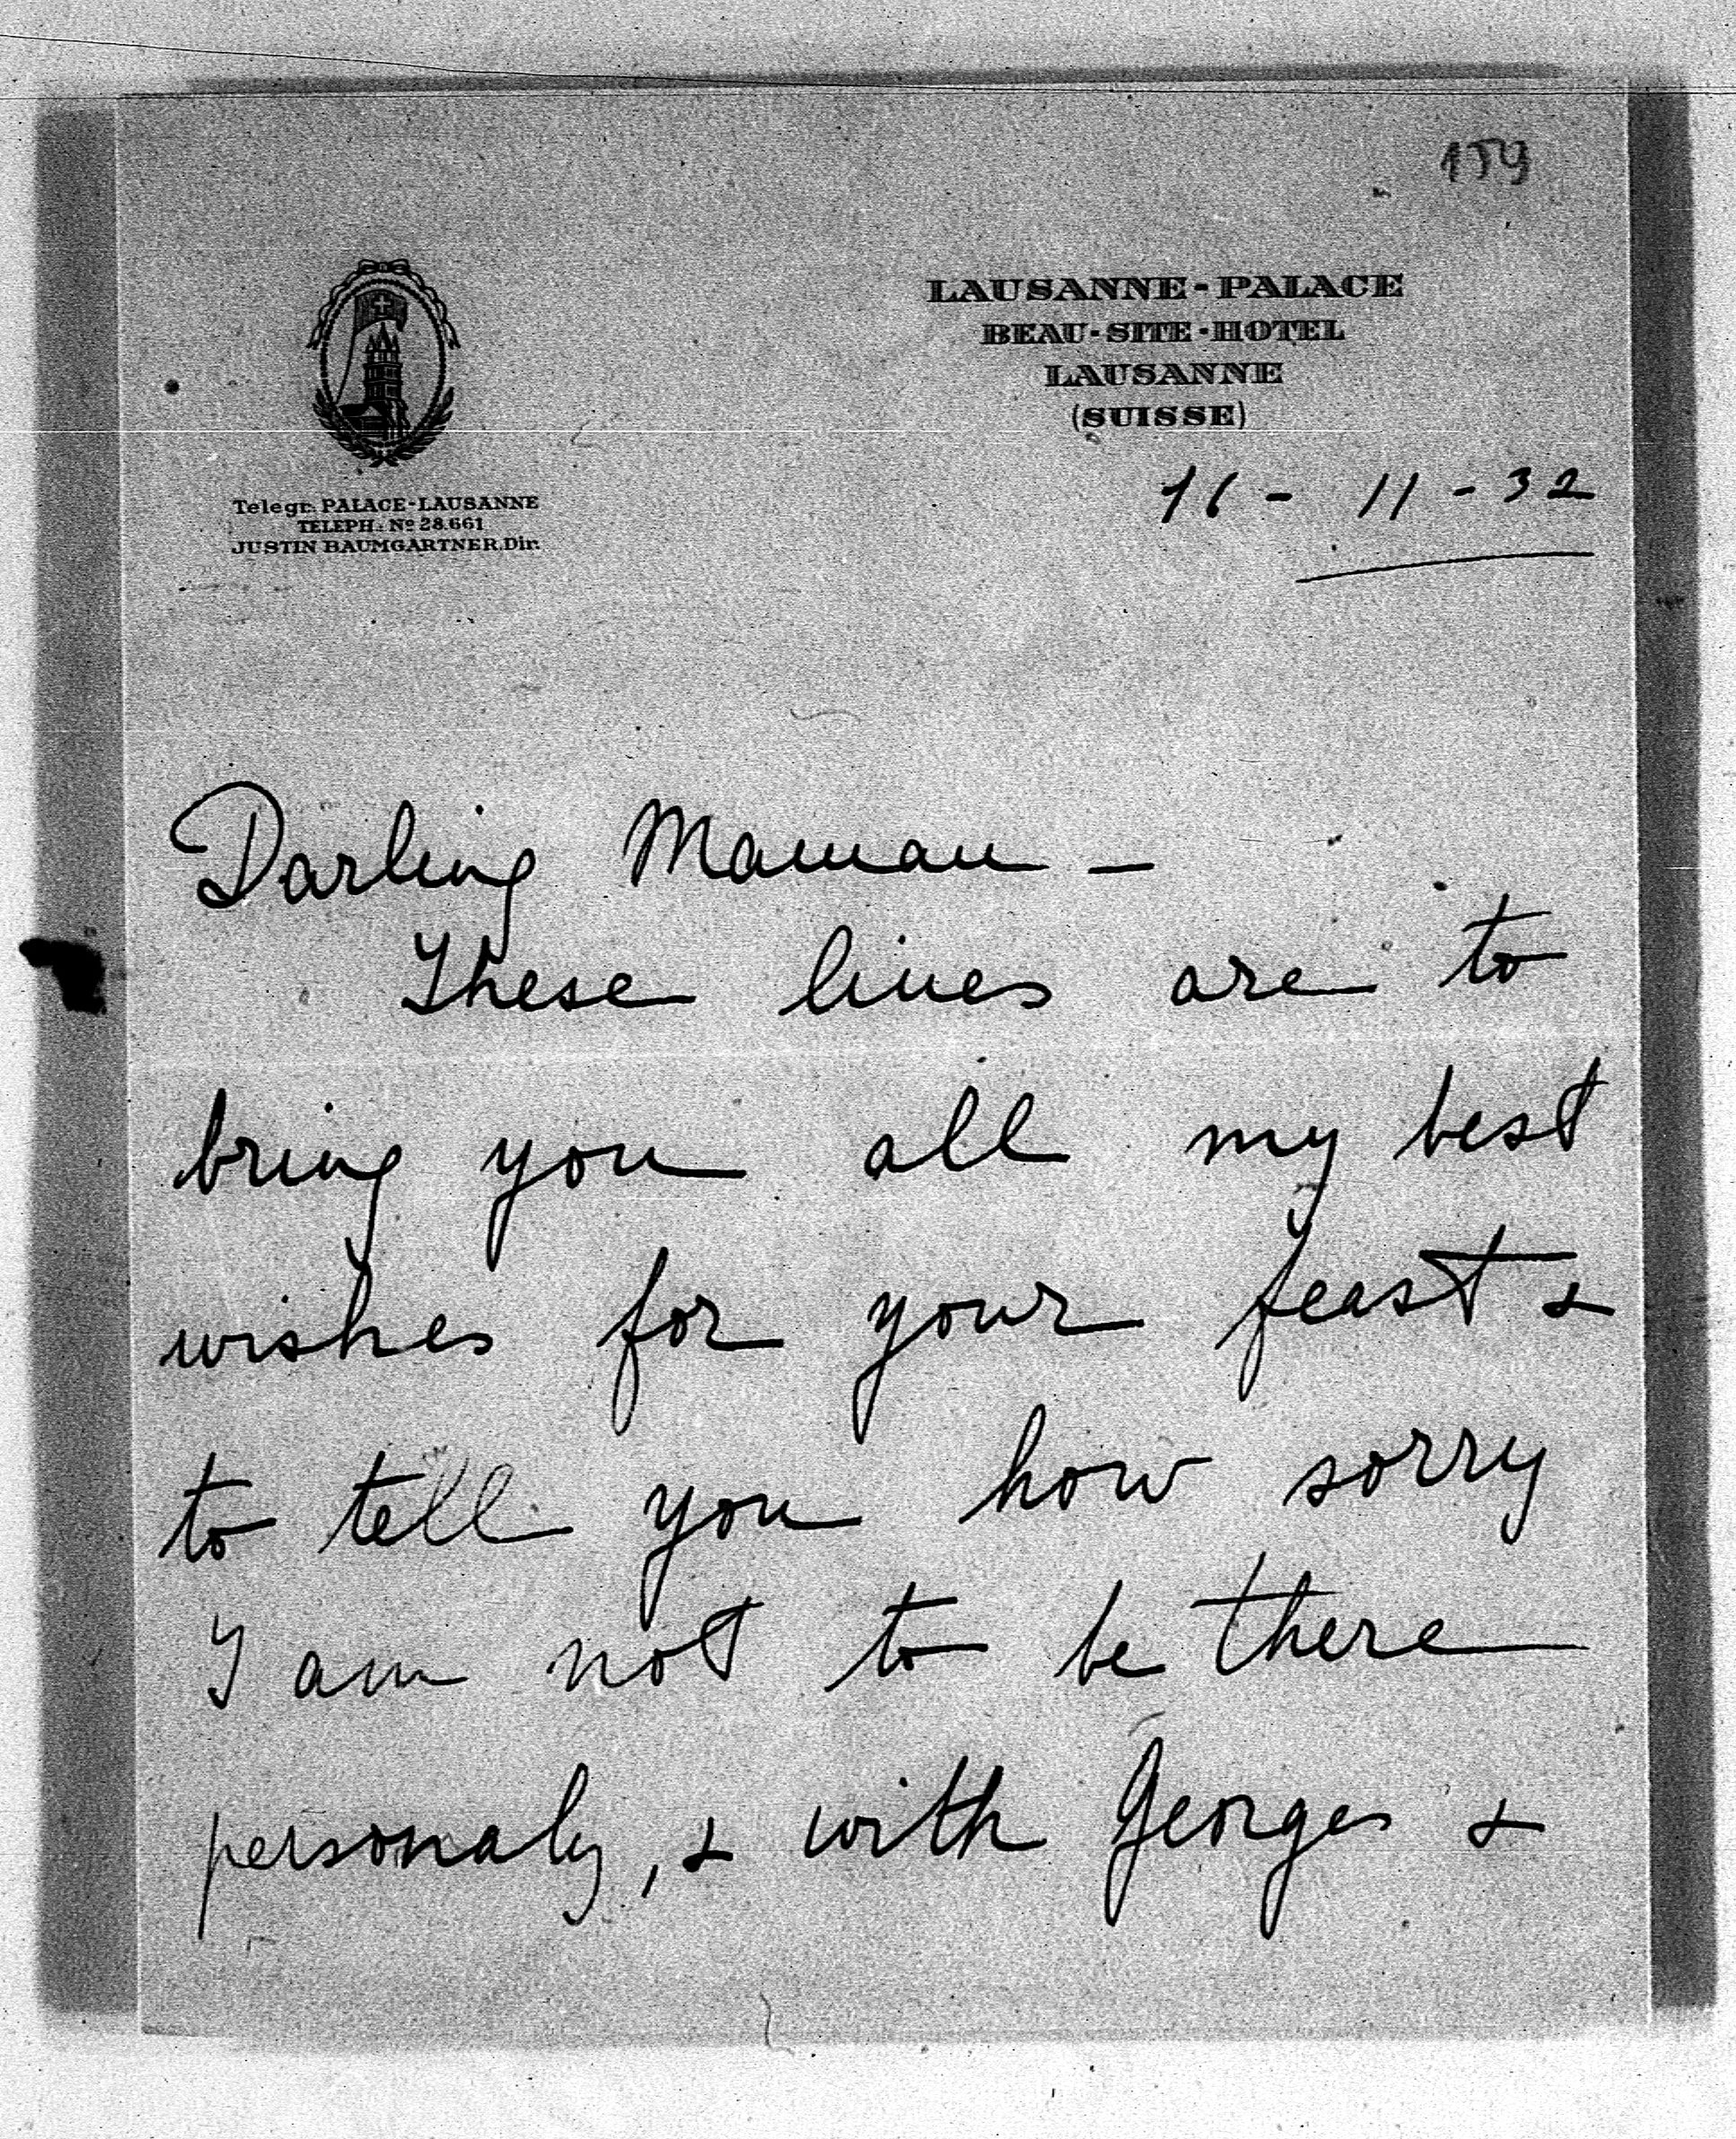 159
LAUSANNE-PALACE
BEAU-SITE-HOTEL
LAUSANNE
(SUISSE)
Telegr. PALACE-LAUSANNE
TELEPH.: Nº 28.661
JUSTIN BAUMGARTNER. Dir.
16 - 11 - 32
Darling Maman —
These lines are to
bring you all my best
wishes for your feast &
to tell you how sorry
I am not to be there
personaly, & with Georges &